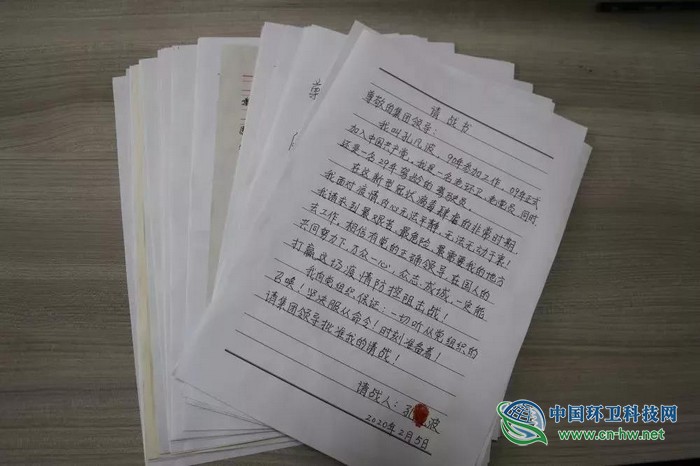 请战书
尊敬的集团领导：
我叫孔凡波，90年参加工作，03年正式
加入中国共产党，我是一名老环卫，老党员，同时
还是一名29年驾龄的驾驶员。
在这新型冠状病毒肆虐的非常时期，
我面对疫情内心无法平静，无法无动于衷！
我请求到最艰苦，最危险，最需要我的地方
去工作，相信有党的正确领导，在国人的
共同努力下，万众一心，众志成城，一定能
打赢这场疫情防控阻击战！
我向党组织保证：一切听从党组织的
召唤！坚决服从命令！时刻准备着！
请集团领导批准我的请战！
请战人：孔 波
2020年2月5日
中国环卫科技网
www.cn-hw.net